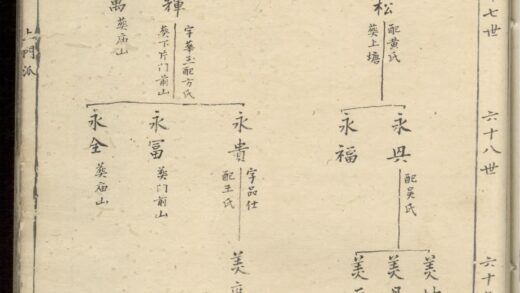 十七世
六十八世
松
配黄氏
葬上塘
永興
配吳氏
永福
美
美
美
輝
字華玉配方氏
葬下片门前山
萬
葬庙山
永貴
字品仕
配王氏
永冨
葬门前山
永全
葬庙山
美
上門派